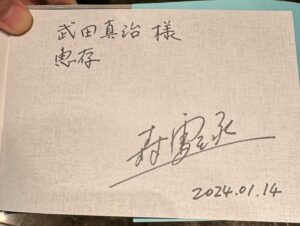 武田真治 様
惠存
2024.01.14